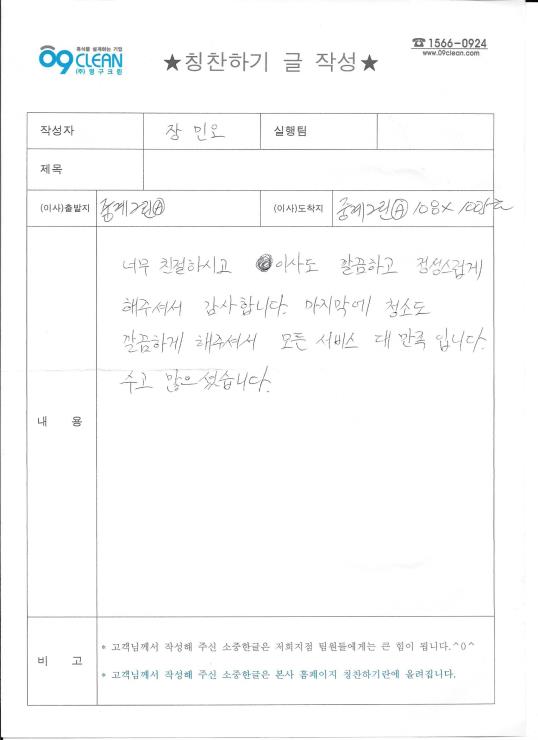 흑석을 설계하는 기업
09CLEAN
(주)영구크린
★칭찬하기 글 작성★
☎ 1566-0924
www.09clean.com
작성자 장 민오 실행팀
제목
(이사)출발지 중계그린Ⓐ (이사)도착지 중계그린Ⓐ
너무 친절하시고 이사도 깔끔하고 정성스럽게
해주셔서 감사합니다. 마지막에 청소도
깔끔하게 해주셔서 모든 서비스 대 만족 입니다.
수고 많으셨습니다.
내 용
비 고
* 고객님께서 작성해 주신 소중한글은 저희지점 팀원들에게는 큰 힘이 됩니다.^0^
* 고객님께서 작성해 주신 소중한글은 본사 홈페이지 칭찬하기란에 올려집니다.